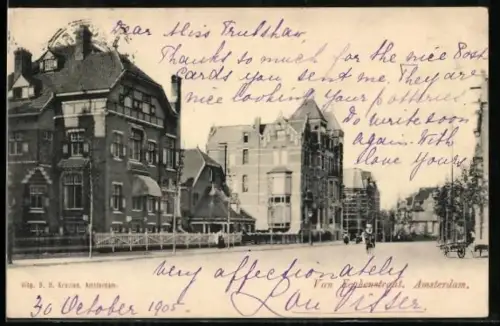 Dear Miss Trubshaw
Thanks so much for the nice Post
Cards you sent me. They are
nice looking your potteries
Do write soon
again. With
love yours
very affectionately
Uitg. D. H. Krauss, Amsterdam.
Van Eeghenstraat. Amsterdam.
30 October 1905.
Lou Visser